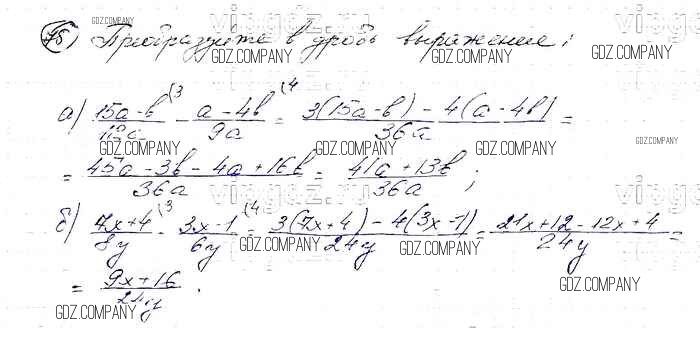 75) Преобразуйте в дробь выражение:
а) (15a-b)/12a (3 - (a-4b)/9a (4 = (3(15a-b)-4(a-4b))/36a =
= (45a-3b-4a+16b)/36a = (41a+13b)/36a ;
б) (7x+4)/8y (3 - (3x-1)/6y (4 = (3(7x+4)-4(3x-1))/24y = (21x+12-12x+4)/24y =
= (9x+16)/24y .
vipgdz.ru
vipgdz.ru
vipgdz.ru
GDZ.COMPANY
GDZ.COMPANY
GDZ.COMPANY
GDZ.COMPANY
GDZ.COMPANY
GDZ.COMPANY
GDZ.COMPANY
GDZ.COMPANY
GDZ.COMPANY
GDZ.COMPANY
GDZ.COMPANY
GDZ.COMPANY
GDZ.COMPANY